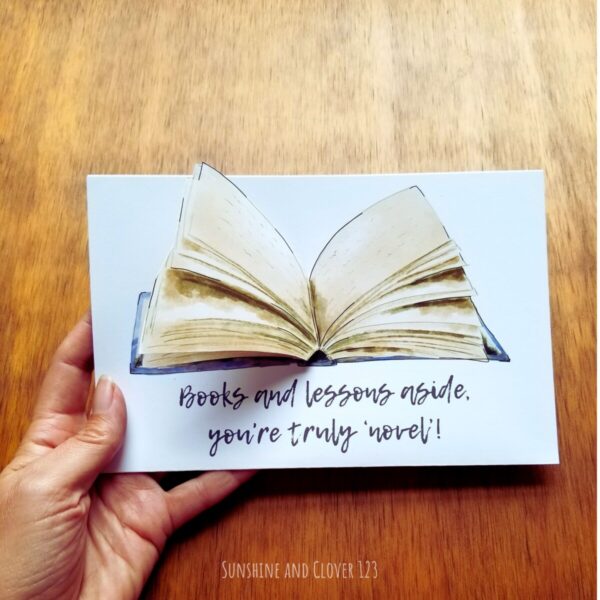 Books and lessons aside,
you're truly 'novel'!
Sunshine and Clover 123